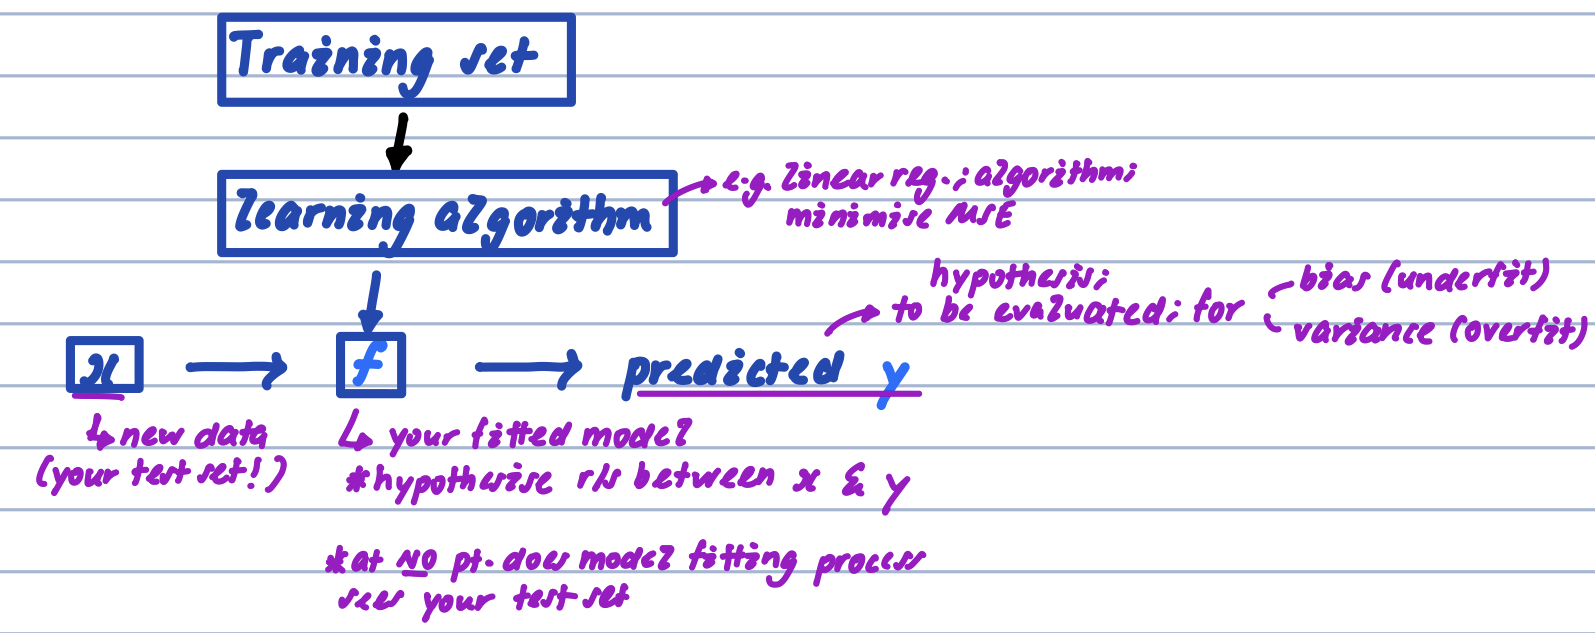 Training set
Learning algorithm
e.g. Linear reg.; algorithm;
minimise MSE
hypothesis;
to be evaluated; for
bias (underfit)
variance (overfit)
x
f
predicted y
new data
(your test set!)
your fitted model
*hypothesise r/s between x & y
*at NO pt. does model fitting process
sees your test set